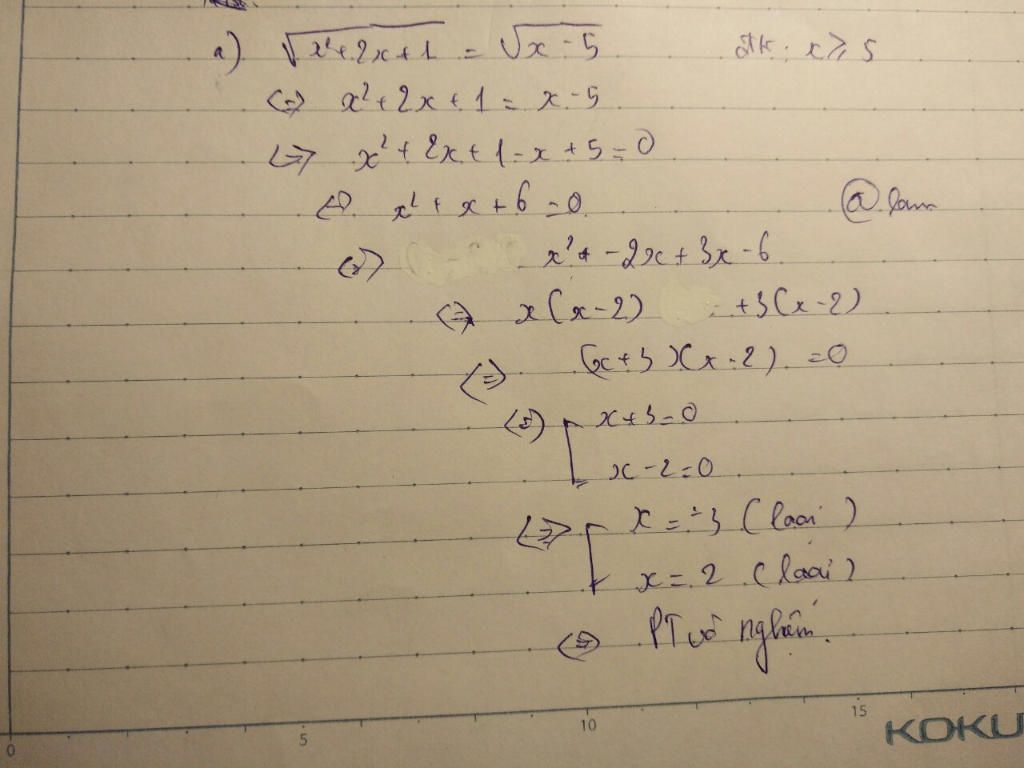 a) √x²+2x+1 = √x-5 ĐK: x ≥ 5
<=> x²+2x+1 = x-5
<=> x²+2x+1-x+5=0
<=> x²+x+6=0 @ lam
<=> x²+-2x+3x-6
<=> x(x-2) +3(x-2)
<=> (x+3)(x-2) =0
<=> [ x+3=0
x-2=0
<=> [ x=-3 (loại)
x=2 (loại)
<=> PT vô nghiệm.
0 5 10 15 KOKU